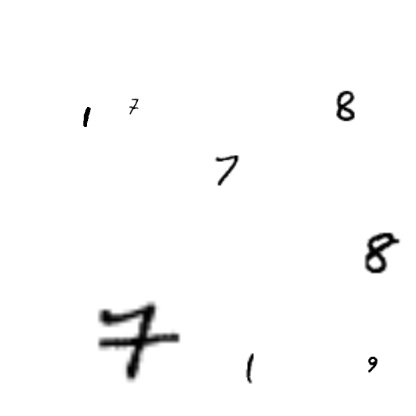 1 7 8
7
8
7 1 9